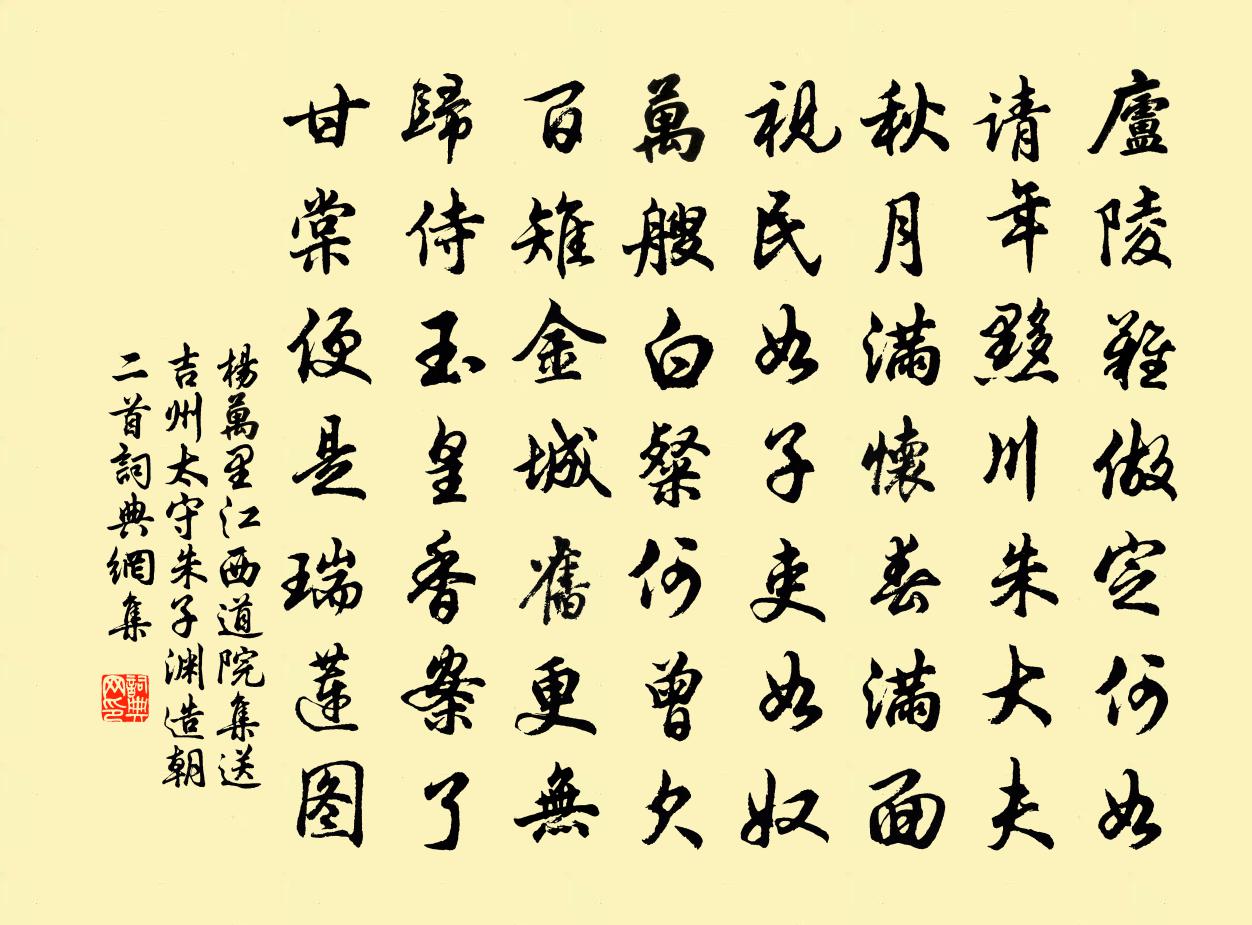 廬陵難做定何如
请年黟川朱大夫
秋月滿懷春滿面
視民如子吏如奴
萬艘白粲何曾欠
百雉金城舊更無
歸侍玉皇香案了
甘棠便是瑞蓮图
楊萬里江西道院集送
吉州太守朱子渊造朝
二首詞典網集
詞典
网印